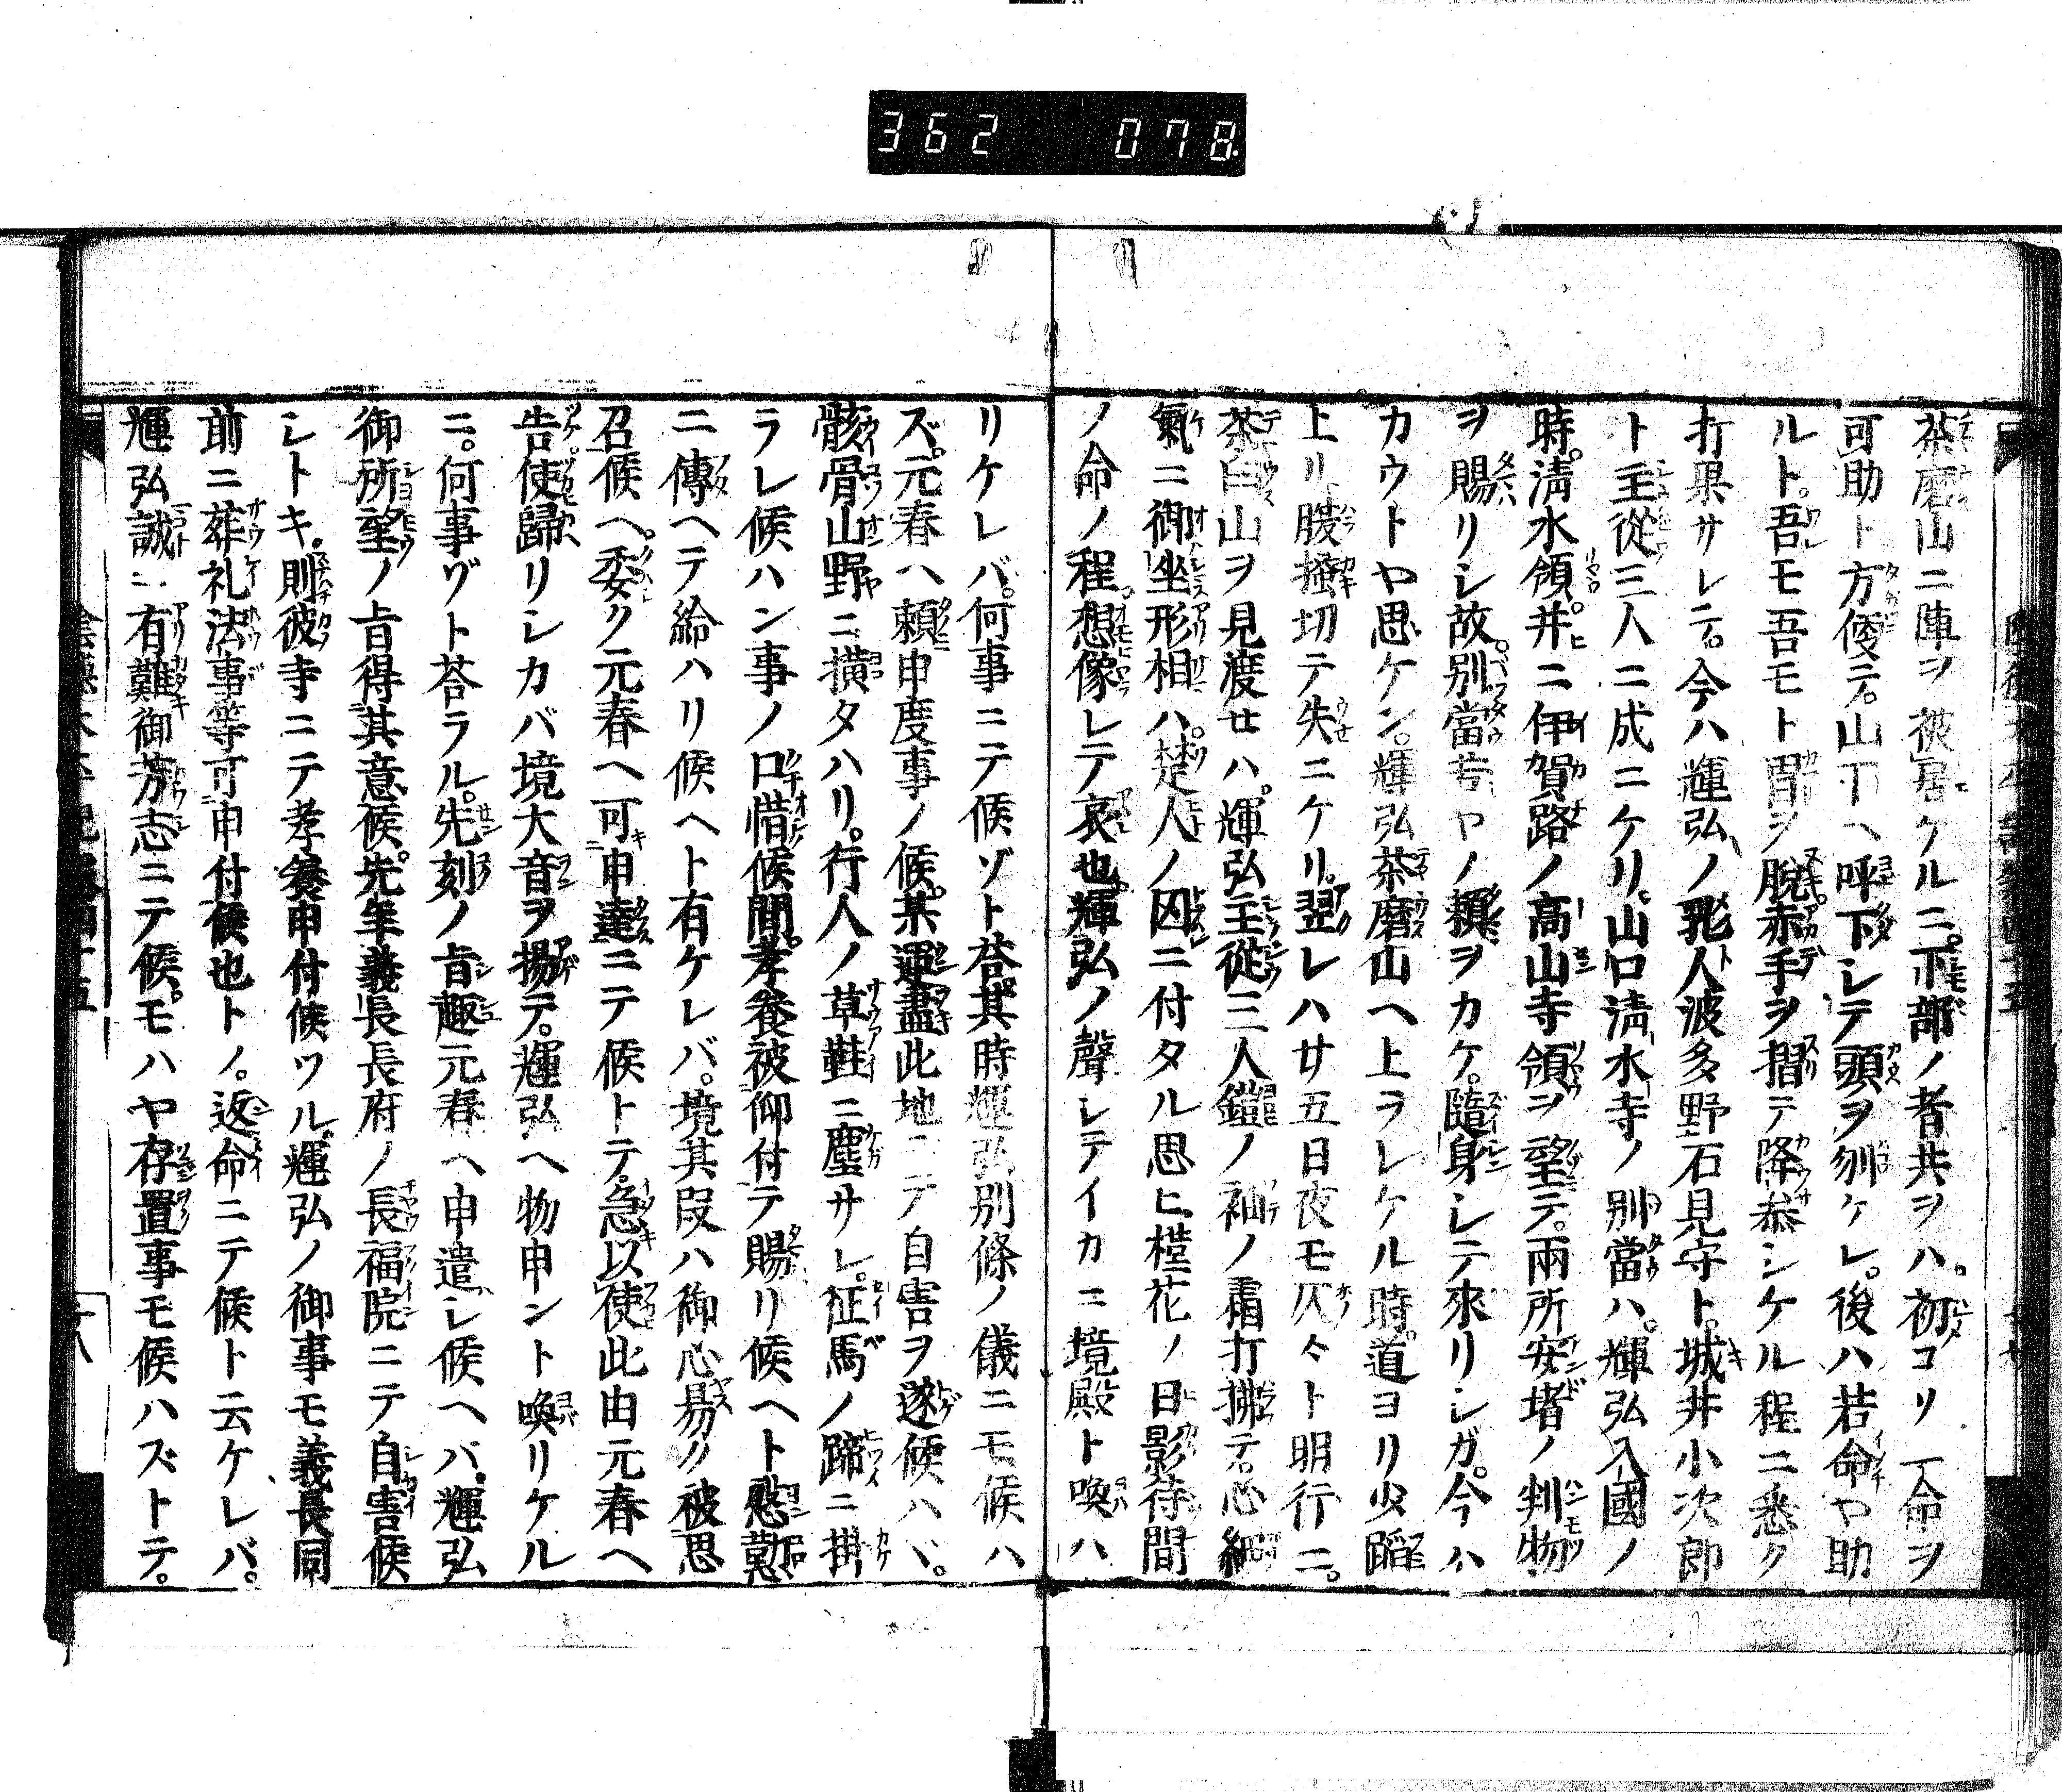 362 078
茶磨山ニ陣ヲ被居ケルニ。下部ノ者共ヲハ。初コリ一命ヲ
可助ト方便テ。山下ヘ呼下シテ頭ヲ刎ケレ。後ハ若命ヤ助
ルト。吾モ吾モト冑ヲ脱。赤手ヲ摺テ降參シケル程ニ悉ク
打果サレテ。今ハ輝弘ノ乳人波多野石見守ト。城井小次郎
ト主從三人ニ成ニケリ。山口淸水寺ノ別當ハ。輝弘入國ノ
時。淸水領。并ニ伊賀路ノ高山寺領ヲ望テ。兩所安堵ノ判物
ヲ賜リシ故。別當昔ヤノ賴ヲカケ。隨身シテ來リシガ。今ハ
カウトヤ思ケン。輝弘茶磨山ヘ上ラレケル時。道ヨリ少蹈
上リ腹搔切テ失ニケリ。翌レハ廿五日夜モ仄々ト明行ニ。
茶臼山ヲ見渡セハ。輝弘主從三人鎧ノ袖ノ霜打拂テ。心細
氣ニ御坐形相ハ。楚人ノ囚ニ付タル思ヒ槿花ノ日影待間
ノ命ノ程。想像レテ哀也。輝弘ノ聲シテイカニ境殿ト喚ハ
リケレバ。何事ニテ候ゾト荅。其時輝弘別條ノ儀ニモ候ハ
ズ。元春ヘ賴申度事ノ候。某運盡此地ニテ自害ヲ遂候ハヾ。
骸骨山野ニ橫タハリ。行人ノ草鞋ニ塵サレ。征馬ノ蹄ニ掛
ラレ候ハン事ノ口惜候間。孝養被仰付テ賜リ候ヘト慇懃
ニ傳ヘテ給ハリ候ヘト有ケレバ。境其段ハ御心易ク被思
召候ヘ。委ク元春ヘ可申達ニテ候トテ。急以使此由元春ヘ
告。使歸リシカバ境大音ヲ揚テ。輝弘ヘ物申ント喚リケル
ニ。何事ヅト荅ラル。先刻ノ旨趣元春ヘ申遣シ候ヘバ。輝弘
御所望ノ旨得其意候。先年義長長府ノ長福院ニテ自害候
シトキ。則彼寺ニテ孝養申付候ツル。輝弘ノ御事モ義長同
前ニ葬礼法事等可申付候也トノ。返命ニテ候ト云ケレバ。
輝弘誠ニ有難御芳志ニテ候。モハヤ存置事モ候ハズトテ。